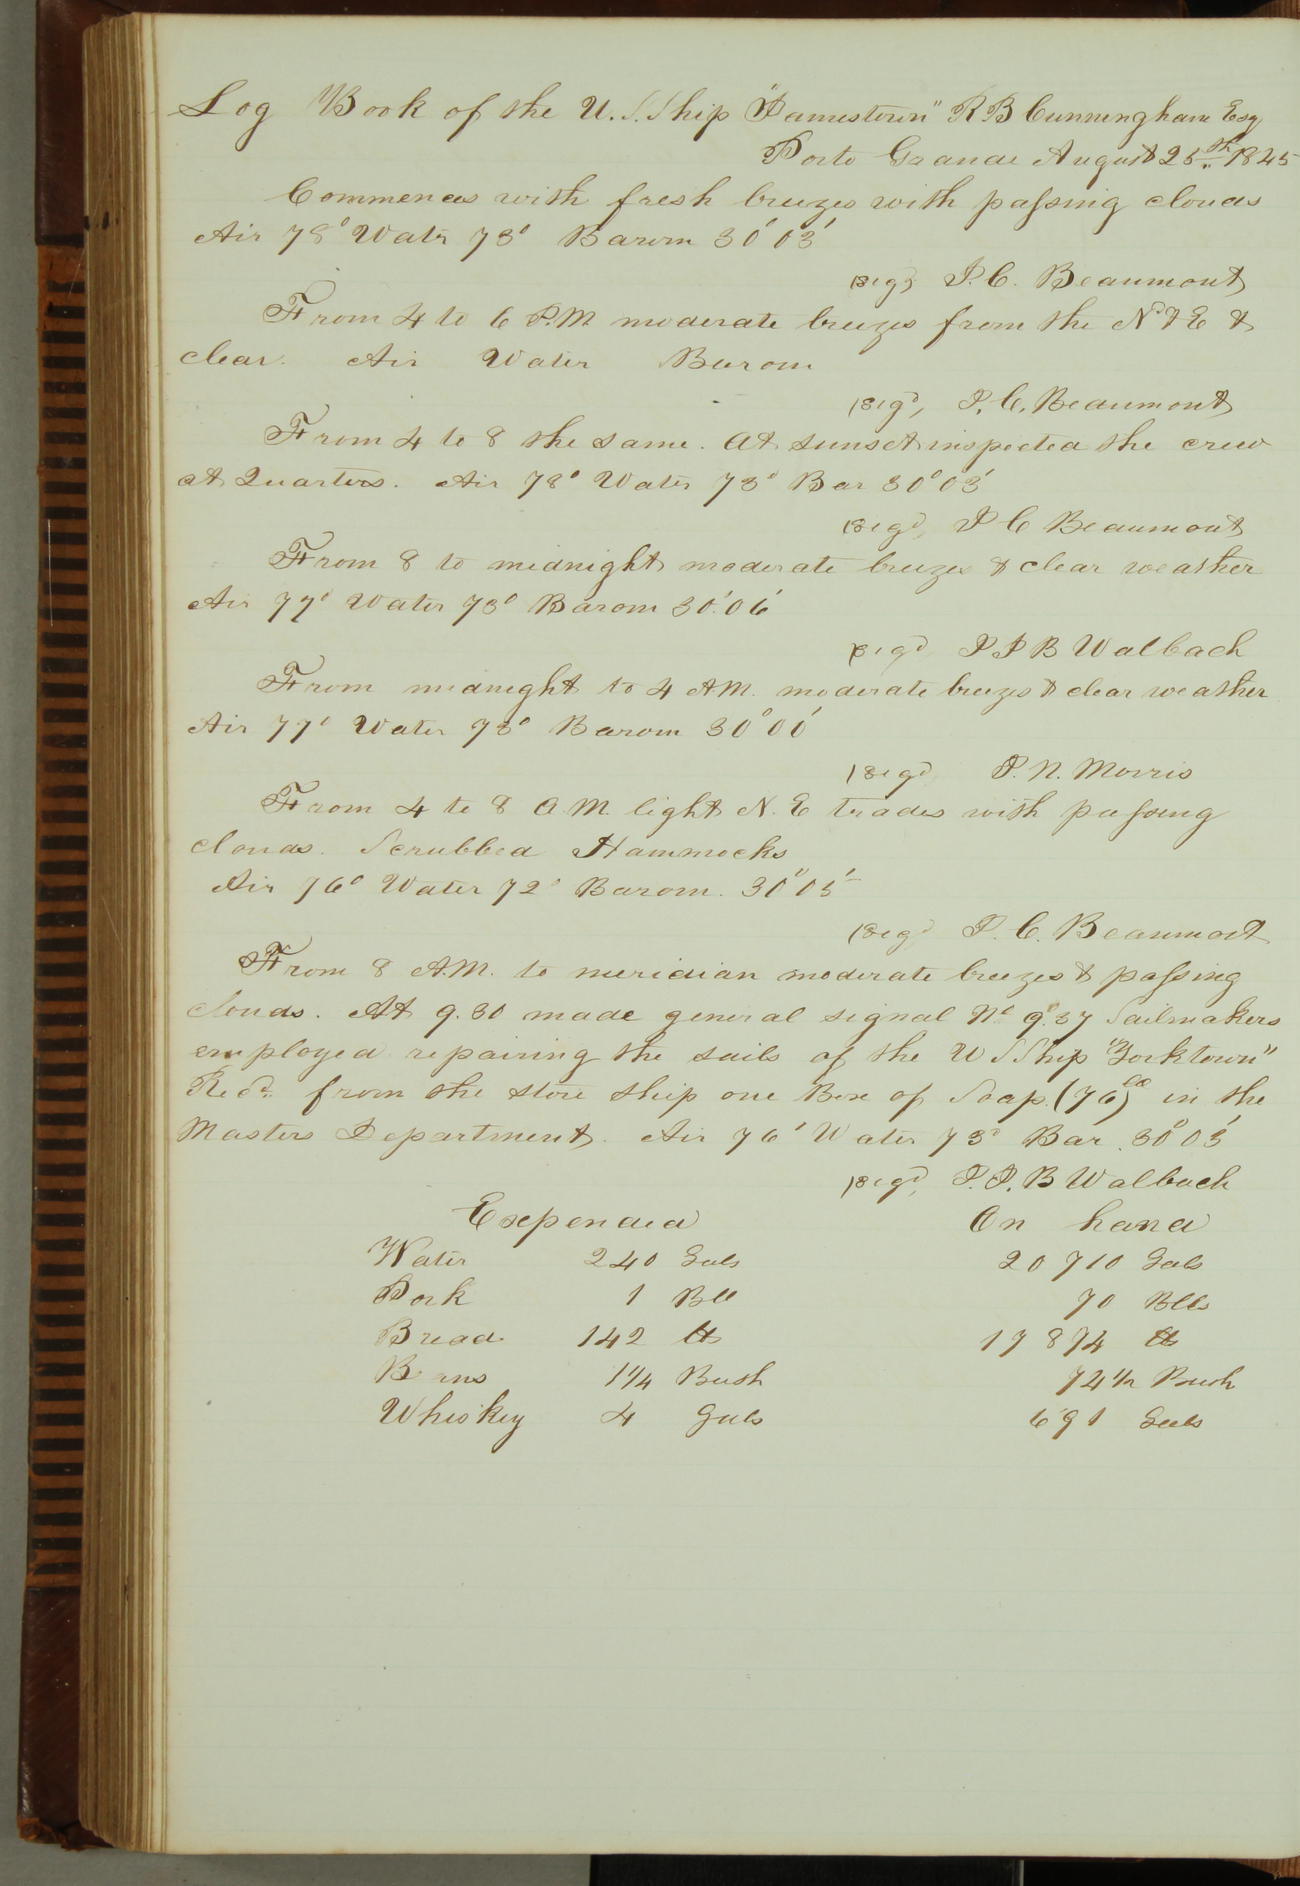 Log Book of the U.S. Ship "Jamestown" R B Cunningham Esq
Porto Grande August 25th 1845
Commences with fresh breezes with passing clouds
Air 78° Watr 73° Barom 30°03'
(sigd) J. C. Beaumont
From 4 to 6 P.M. moderate breezes from the Nd & E &
clear. Air Water Barom
(sigd, J. C. Beaumont
From 4 to 8 the same. At sunset inspected the crew
at Quarters. Air 78° Water 73° Bar 30°03'
(sigd, J C Beaumont
From 8 to midnight moderate breezes & clear weather
Air 77° Water 73° Barom 30°06'
(sigd, J J B Walbach
From midnight to 4 A.M. moderate breezes & clear weather
Air 77° Water 73° Barom 30°00'
(sigd, J. N. Morris
From 4 to 8 A.M. light N. E trades with passing
clouds. Scrubbed Hammocks
Air 76° Water 72° Barom. 30°05'
(sigd J. C. Beaumont
From 8 A.M. to meridian moderate breezes & passing
clouds. At 9.30 made general signal No 9.37 Sailmakers
employed repairing the sails of the U S Ship "Yorktown"
Recd. from the store ship one Box of Soap. (76) lbs in the
Masters Department. Air 76° Water 73° Bar. 30°03'
(sigd, J. J. B Walbach
Expended On hand
Water 240 Gals 20710 Gals
Pork 1 Bll 70 Blls
Bread 142 lbs 17874 lbs
Beans 1 1/4 Bush 74 1/2 Bush
Whiskey 4 Gals 691 Gals